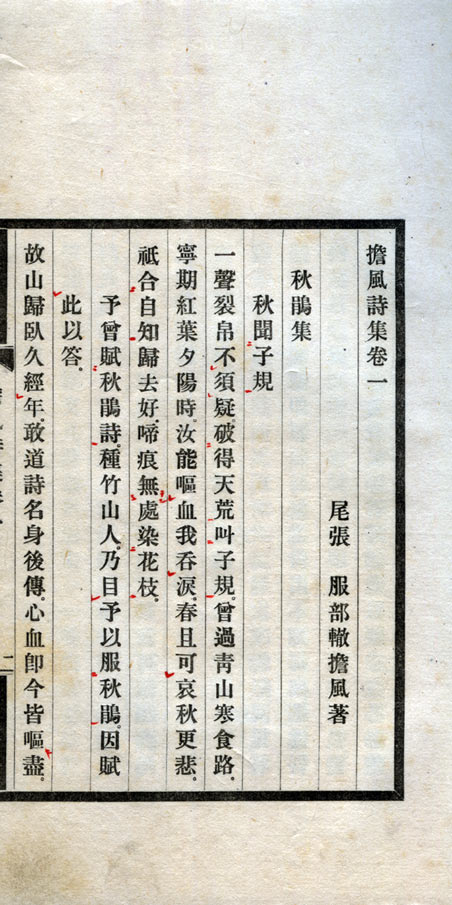 擔風詩集卷一
尾張　服部轍擔風著
秋鵑集
秋聞子規
一聲裂帛不須疑。破得天荒叫子規。曾過靑山寒食路。
寧期紅葉夕陽時。汝能嘔血我呑淚。春且可哀秋更悲。
祗合自知歸去好。啼痕無處染花枝。
予曾賦秋鵑詩。種竹山人。乃目予以服秋鵑。因賦
此以答。
故山歸臥久經年。敢道詩名身後傳。心血卽今皆嘔盡。